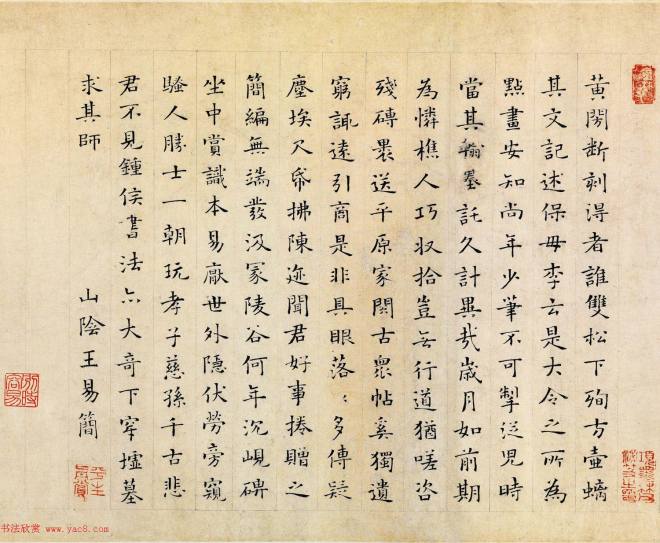 黃閍斷刻得者誰雙松下殉方壺螭
其文記述保母李云是大令之所為
點畫安知尚年少筆不可掣從兒時
當其翰墨託久計異哉歲月如前期
為憐樵人巧収拾豈無行道猶嗟咨
殘磚裹送平原家閱古衆帖奚獨遺
窮諏遠引商是非具眼落〻多傳疑
塵埃尺帋拂陳迹聞君好事捲贈之
簡編無端發汲冢陵谷何年沉峴碑
坐中賞識本易厭世外隱伏勞旁窺
騷人勝士一朝玩孝子慈孫千古悲
君不見鍾侯書法亦大奇下窂墟墓
求其師
山陰王易簡
书法欣赏 www.yac8.com